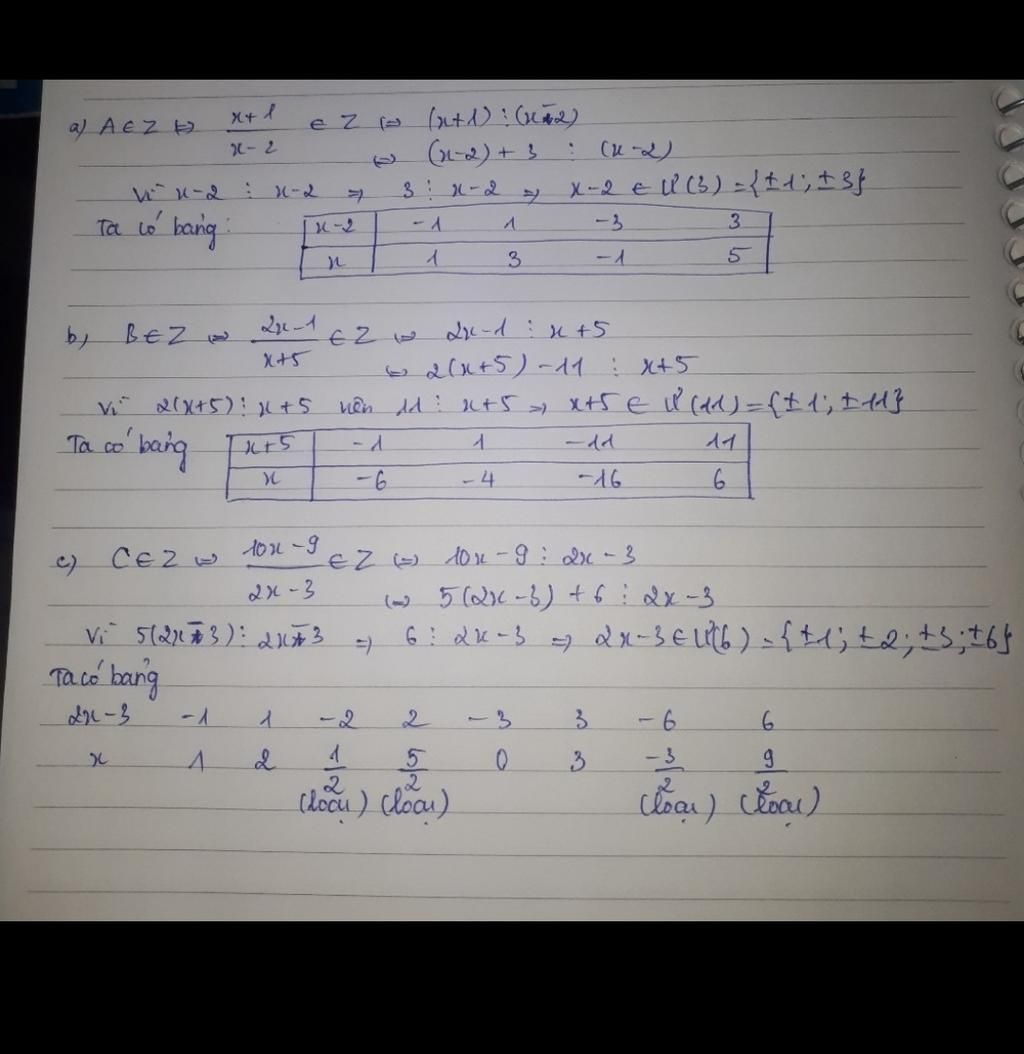 a) A ∈ Z ⇔ \frac{x+1}{x-2} ∈ Z ⇔ (x+1) ⋮ (x-2)
⇔ (x-2) + 3 ⋮ (x-2)
Vì x-2 ⋮ x-2 ⇒ 3 ⋮ x-2 ⇒ x-2 ∈ Ư(3) = {±1; ±3}
Ta có bảng:
x-2 -1 1 -3 3
x 1 3 -1 5
b, B ∈ Z ⇔ \frac{2x-1}{x+5} ∈ Z ⇔ 2x-1 ⋮ x+5
⇔ 2(x+5) - 11 ⋮ x+5
Vì 2(x+5) ⋮ x+5 nên 11 ⋮ x+5 ⇒ x+5 ∈ Ư(11) = {±1; ±11}
Ta có bảng
x+5 -1 1 -11 11
x -6 -4 -16 6
c) C ∈ Z ⇔ \frac{10x-9}{2x-3} ∈ Z ⇔ 10x-9 ⋮ 2x-3
⇔ 5(2x-3) + 6 ⋮ 2x-3
Vì 5(2x-3) ⋮ 2x-3 ⇒ 6 ⋮ 2x-3 ⇒ 2x-3 ∈ Ư(6) = {±1; ±2; ±3; ±6}
Ta có bảng
2x-3 -1 1 -2 2 -3 3 -6 6
x 1 2 \frac{1}{2} \frac{5}{2} 0 3 \frac{-3}{2} \frac{9}{2}
(loại) (loại) (loại) (loại)